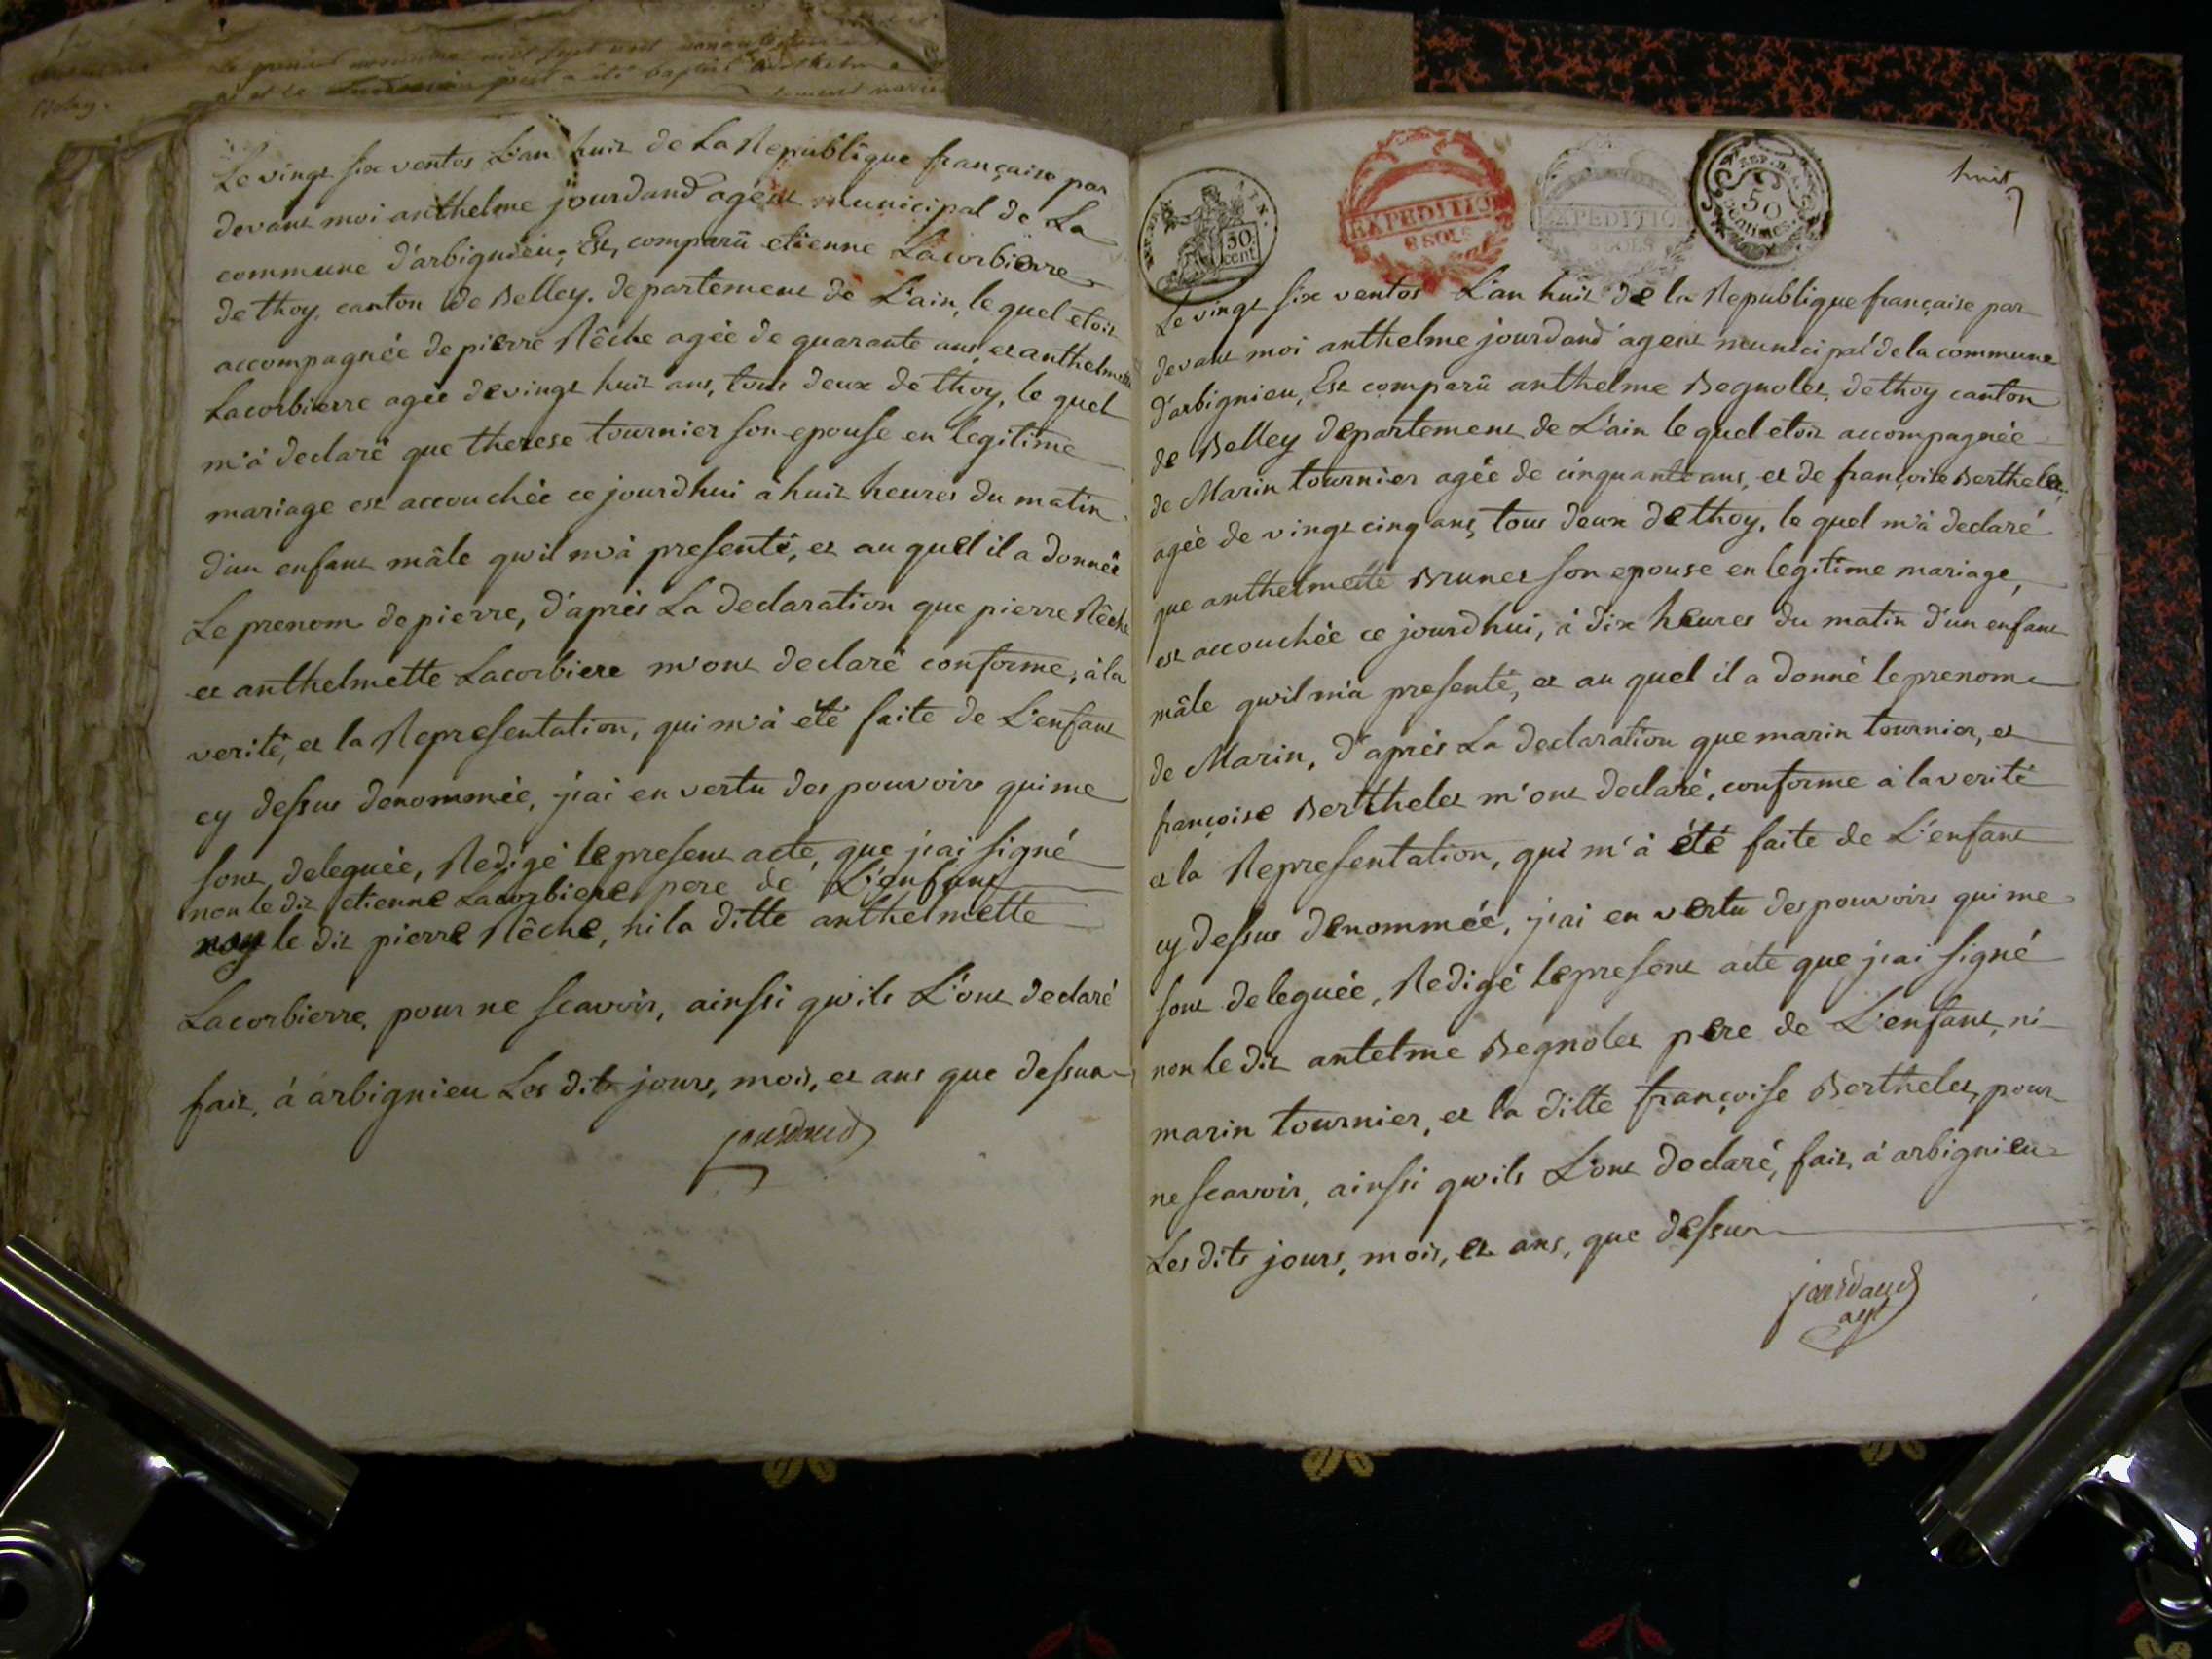 Le vingt six ventos L'an huit de La Republique française par
devant moi anthelme jourdand agent municipal de La
commune d'arbignieu, Est, comparû etienne Lacorbierre
de thoy, canton de Belley, departement de L'ain, le quel etoit
accompagnée de pierre Rêche agée de quarante ans, et anthelmette
Lacorbierre agée de vingt huit ans, tous deux de thoy, le quel
m'à declaré que therese tournier son epouse en legitime
mariage est accouchée ce jourdhui à huit heures du matin
d'un enfant mâle qu'il m'à presenté, et au quel il a donnée
Le prenom de pierre, d'après La declaration que pierre Rêche
et anthelmette Lacorbiere m'ont declaré conforme, à la
verité, et la Representation, qui m'à été faite de L'enfant
cy dessus denommée, j'ai en vertu des pouvoirs qui me
sont deleguée, Redigé le present acte, que j'ai signé
non le dit etienne Lacorbiere, pere de L'enfant
le dit pierre Rêche, ni la ditte anthelmette
Lacorbierre, pour ne scavoir, ainssi qu'ils L'ont declaré
fait, à arbignieu Les dits jours, mois, et ans que dessus
jourdand
huit
REP. FRA.
AIN.
50 cent
EXPEDITIO
8 SOLS
EXPEDITIO
8 SOLS
REP. FRA.
50
centimes
Le vingt six ventos L'an huit de la Republique française par
devant moi anthelme jourdand agent municipal de la commune
d'arbignieu, Est comparû anthelme Begnolet, de thoy canton
de Belley departement de L'ain le quel etoit accompagnée
de Marin tournier agée de cinquante ans, et de françoise Berthelet,
agée de vingt cinq ans, tous deux de thoy, le quel m'à declaré
que anthelmette Brunet son epouse en legitime mariage,
est accouchée ce jourdhui, à dix heures du matin d'un enfant
mâle qu'il m'a presenté, et au quel il a donné le prenom
de Marin, d'après La declaration que marin tournier, et
françoise Berthelet m'ont declaré, conforme à la verité
et la Representation, qui m'à été faite de L'enfant
cy dessus denommée, j'ai en vertu des pouvoirs qui me
sont deleguée, Redigé le present acte que j'ai signé
non le dit antelme Begnolet pere de L'enfant, ni
marin tournier, et la ditte françoise Berthelet, pour
ne scavoir, ainssi qu'ils L'ont declaré, fait, à arbignieu
Les dits jours, mois, et ans, que dessus
jourdand
agt